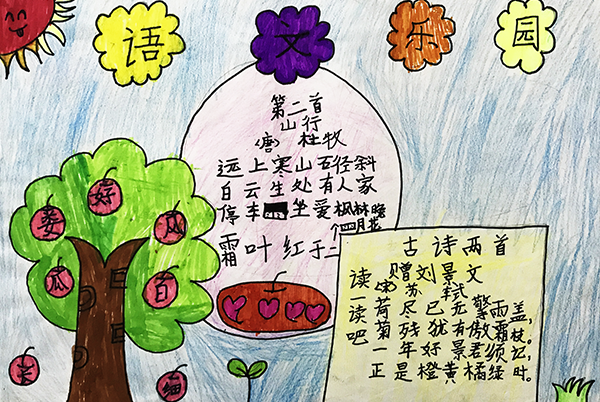 语文乐园
第二首
山行
(唐)杜牧
远上寒山石径斜
白云生处有人家
停车坐爱枫林晚
霜叶红于二月花
好
娄
风
瓜
百
长
细
古诗两首
读一读吧
赠刘景文
宋 苏轼
荷尽已无擎雨盖,
菊残犹有傲霜枝。
一年好景君须记,
正是橙黄橘绿时。